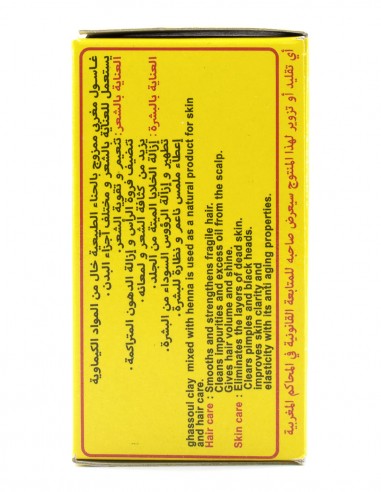 غاسول مغربي ممزوج بالحناء الطبيعية خال من المواد الكيماوية
يستعمل للعناية بالشعر و مختلف أجزاء البدن.
العناية بالشعر: تنعيم و تقوية الشعر.
تنضيف فروة الرأس و إزالة الدهون المتراكمة.
يزيد من كثافة الشعر و لمعانه.
العناية بالبشرة: إزالة الخلايا الميتة من الجلد.
تطهير و إزالة الرؤوس السوداء من البشرة.
إعطاء ملمس ناعم و نظارة للبشرة.
ghassoul clay mixed with henna is used as a natural product for skin
and hair care.
Hair care : Smooths and strengthens fragile hair.
Cleans impurities and excess oil from the scalp.
Gives hair volume and shine.
Skin care : Eliminates the layers of dead skin.
Clears pimples and black heads.
improves skin clarity and
elasticity with its anti aging properties.
أي تقليد أو تزوير لهذا المنتوج سيعرض صاحبه للمتابعة القانونية في المحاكم المغربية